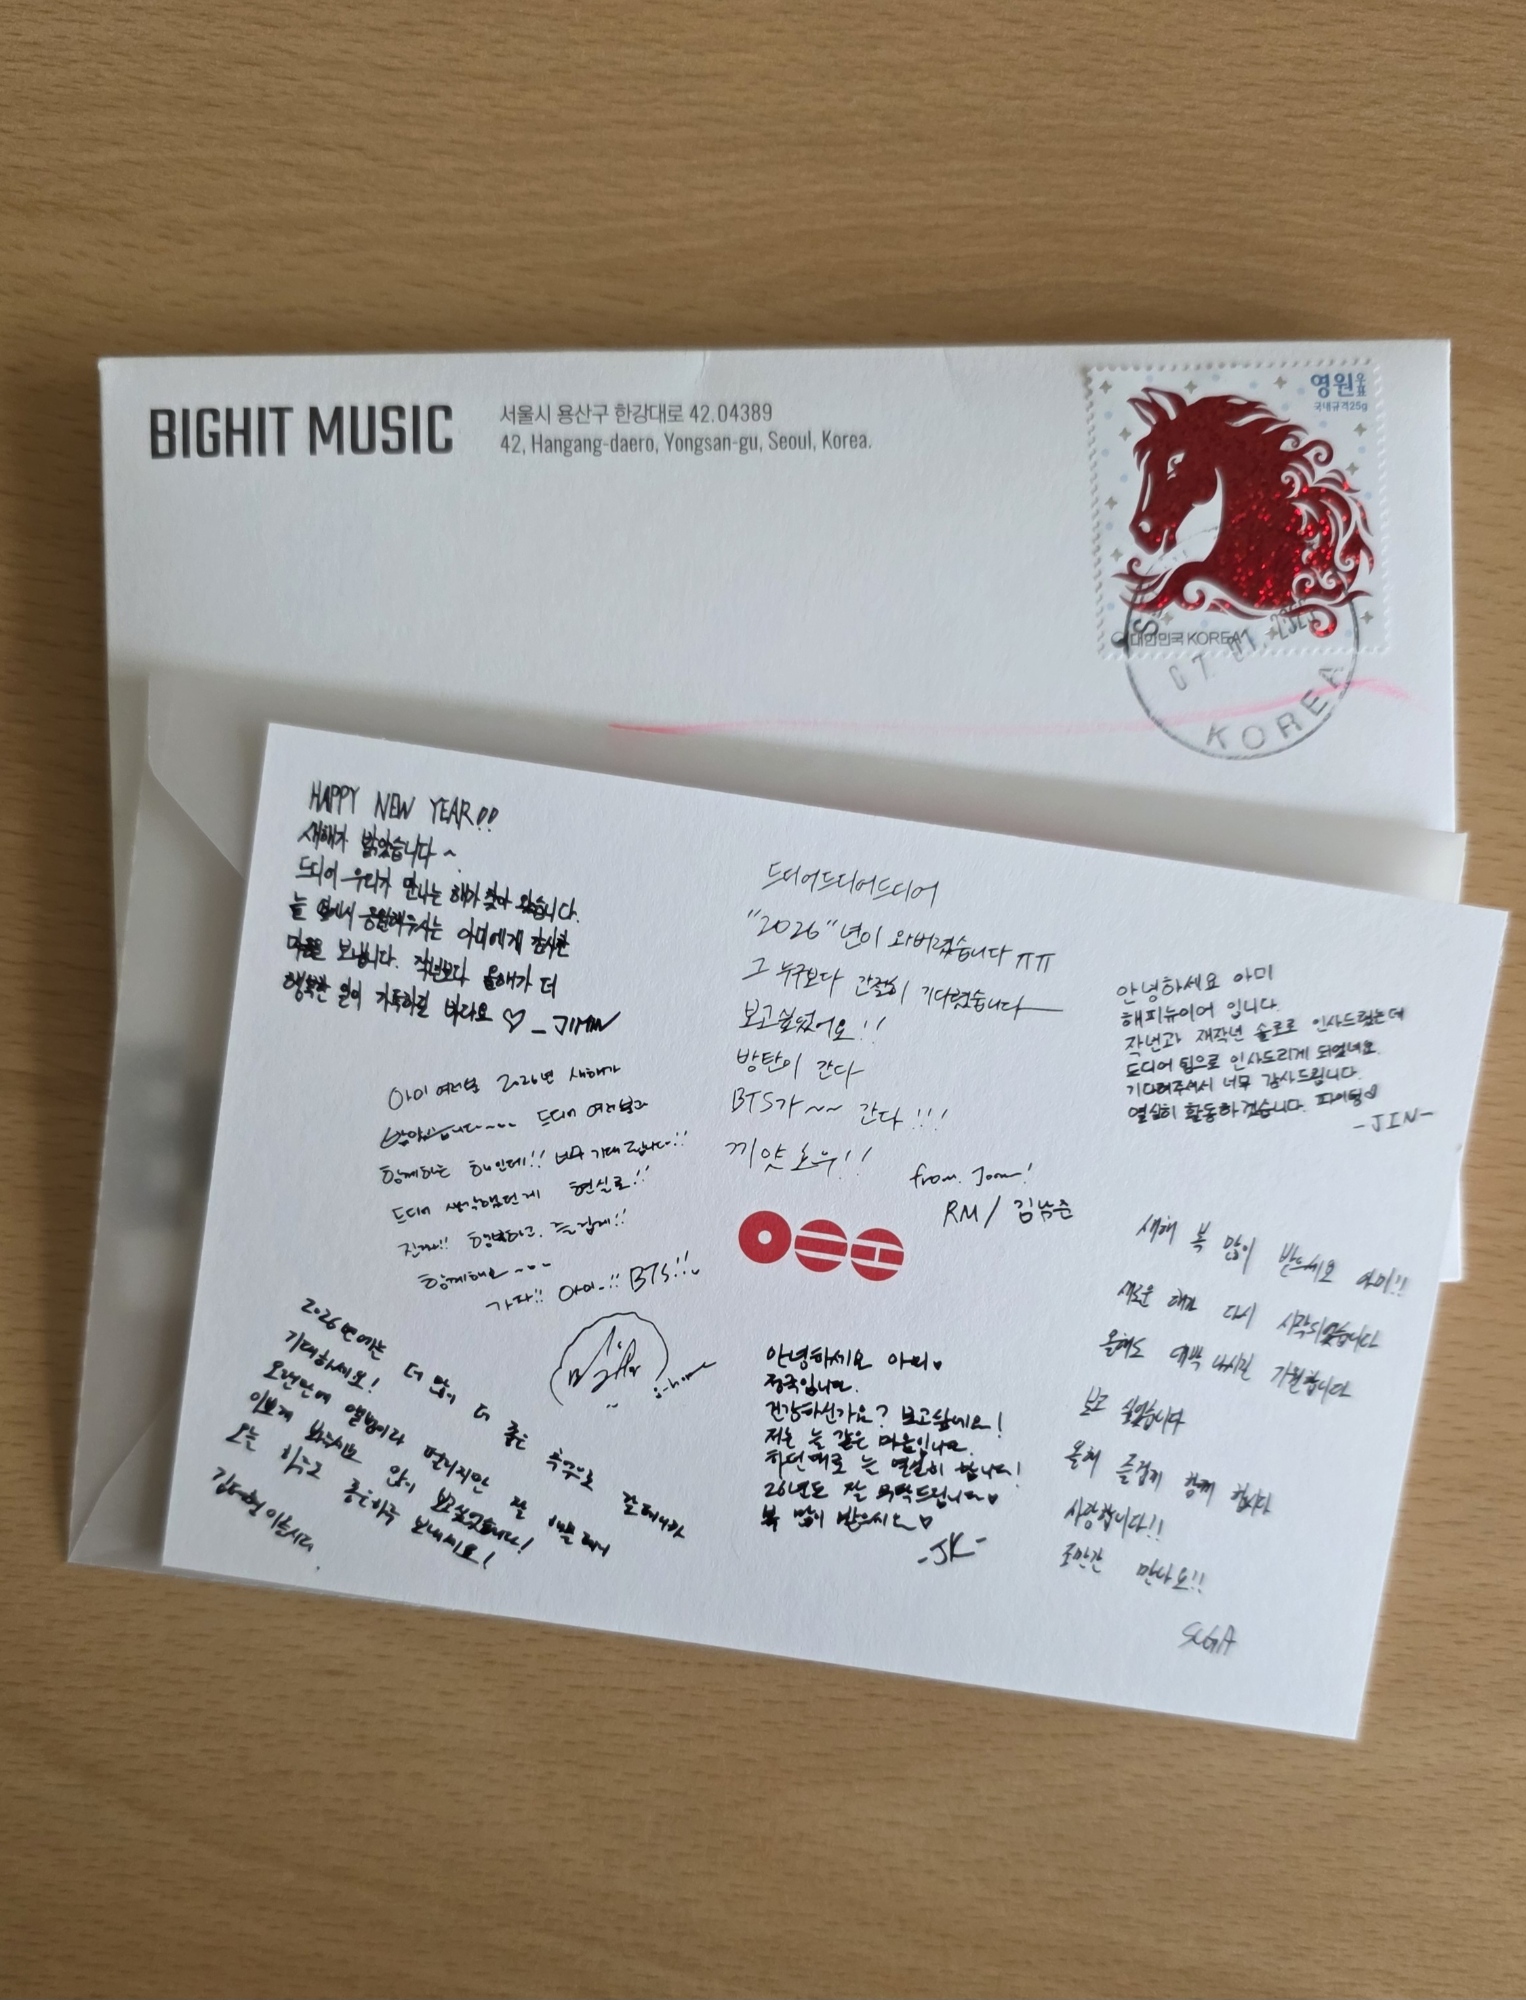 BIGHIT MUSIC
서울시 용산구 한강대로 42.04389
42, Hangang-daero, Yongsan-gu, Seoul, Korea.
영원우표
국내규격25g
대한민국 KOREA
KOREA
HAPPY NEW YEAR!!
새해가 밝았습니다~
드디어 우리가 만나는 해가 찾아 왔습니다.
늘 옆에서 응원해주시는 아미에게 감사한
마음을 보냅니다. 작년보다 올해가 더
행복한 일이 가득하길 바라요 ♡ - JIMIN
아미 여러분 2026년 새해가
밝았습니다~~~ 드디어 여러분과
함께하는 해인데!! 너무 기대됩니다!!
드디어 생각했던게 현실로!!
진짜!! 행복하고, 즐겁게!!
함께해요~~~
가자!! 아미..!! BTS!!
j-hope
2026년에는 더 많이 더 좋은 추억으로
기대하세요!
오랜만에 앨범이라 떨리지만 잘
이쁘게 봐주시요 많이 보고싶었습니다!
오늘 하루도 좋은하루 보내세요!
김태형 이올시다.
드디어드디어드디어
"2026"년이 와버렸습니다 ㅠㅠ
그 누구보다 간절히 기다렸습니다
보고싶었어요!!
방탄이 간다
BTS가~~ 간다!!!
끼얏호우!!
from. Joon!
RM / 김남준
안녕하세요 아미
정국입니다.
건강하신가요? 보고싶네요!
저는 늘 같은 마음입니다.
하던대로 늘 열심히 합니다!
26년도 잘 부탁드립니다
복 많이 받으시오♡
-JK-
안녕하세요 아미
해피뉴이어 입니다.
작년과 재작년 솔로로 인사드렸는데
드디어 팀으로 인사드리게 되었네요.
기다려주셔서 너무 감사드립니다.
열심히 활동하겠습니다. 파이팅♡
-JIN-
새해 복 많이 받으세요 아미!!
새로운 해가 다시 시작되었습니다
올해도 대박 나시길 기원합니다
보고 싶었습니다
올해 즐겁게 함께 합시다
사랑합니다!!
조만간 만나요!!
SUGA